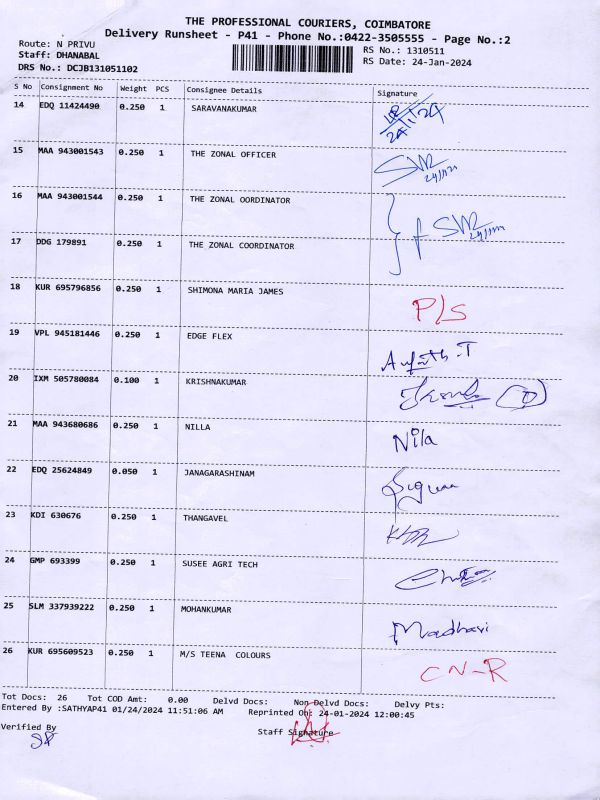 THE PROFESSIONAL COURIERS, COIMBATORE
Delivery Runsheet - P41 - Phone No.:0422-3505555 - Page No.:2
Route: N PRIVU RS No.: 1310511
Staff: DHANABAL RS Date: 24-Jan-2024
DRS No.: DCJB131051102
S No Consignment No Weight PCS Consignee Details Signature
14 EDQ 11424490 0.250 1 SARAVANAKUMAR
15 MAA 943001543 0.250 1 THE ZONAL OFFICER
16 MAA 943001544 0.250 1 THE ZONAL OORDINATOR
17 DDG 179891 0.250 1 THE ZONAL COORDINATOR
18 KUR 695796856 0.250 1 SHIMONA MARIA JAMES P/S
19 VPL 945181446 0.250 1 EDGE FLEX
20 IXM 505780084 0.100 1 KRISHNAKUMAR
21 MAA 943680686 0.250 1 NILLA Nila
22 EDQ 25624849 0.050 1 JANAGARASHINAM
23 KDI 630676 0.250 1 THANGAVEL
24 GMP 693399 0.250 1 SUSEE AGRI TECH
25 SLM 337939222 0.250 1 MOHANKUMAR Madhavi
26 KUR 695609523 0.250 1 M/S TEENA COLOURS CN-R
Tot Docs: 26 Tot COD Amt: 0.00 Delvd Docs: Non Delvd Docs: Delvy Pts:
Entered By :SATHYAP41 01/24/2024 11:51:06 AM Reprinted On: 24-01-2024 12:00:45
Verified By Staff Signature